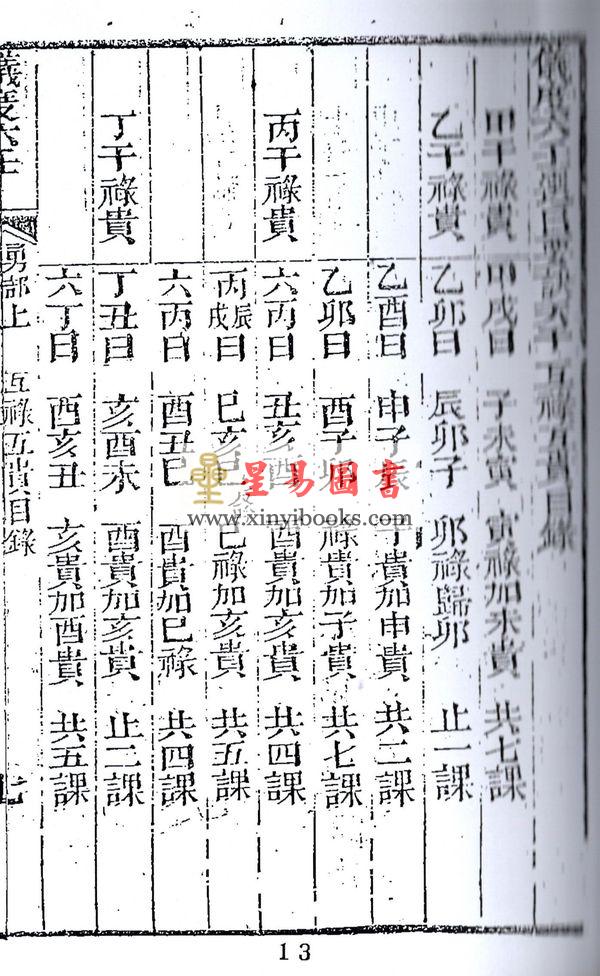 儀度六壬選日要訣六十五祿五貴目錄
甲干祿貴 甲戌日 子未寅 寅祿加未貴 共七課
乙干祿貴 乙卯日 辰卯子 卯祿歸卯 止一課
乙酉日 申子辰 子貴加申貴 共二課
乙卯日 酉子卯 祿貴加子貴 共七課
丙干祿貴 六丙日 丑亥酉 酉貴加亥貴 共四課
丙辰戌日 巳亥巳 巳祿加亥貴 共五課
六丙日 酉丑巳 酉貴加巳祿 共四課
丁干祿貴 丁丑日 亥酉未 酉貴加亥貴 止二課
六丁日 酉亥丑 亥貴加酉貴 共五課
儀度六壬 勇部上 五祿五貴目錄 七
星易圖書
www.xinyibooks.com
13